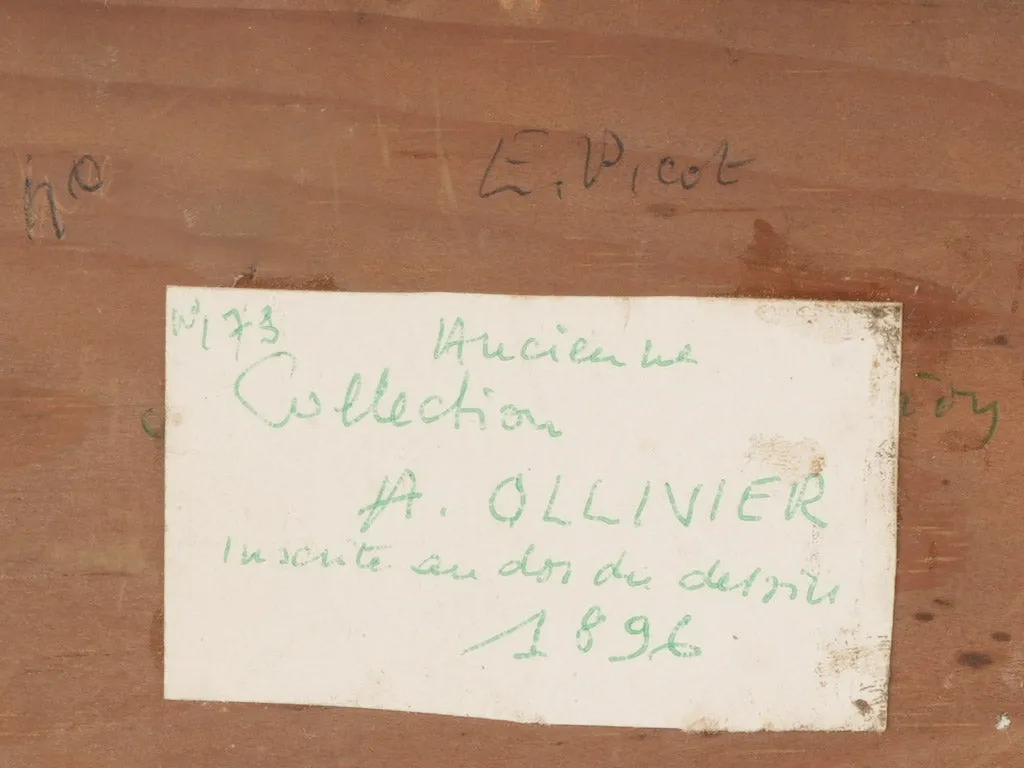 No
E. Picot
No 173
Ancienne
Collection
A. OLLIVIER
Inscrite au dos du dessin
1896